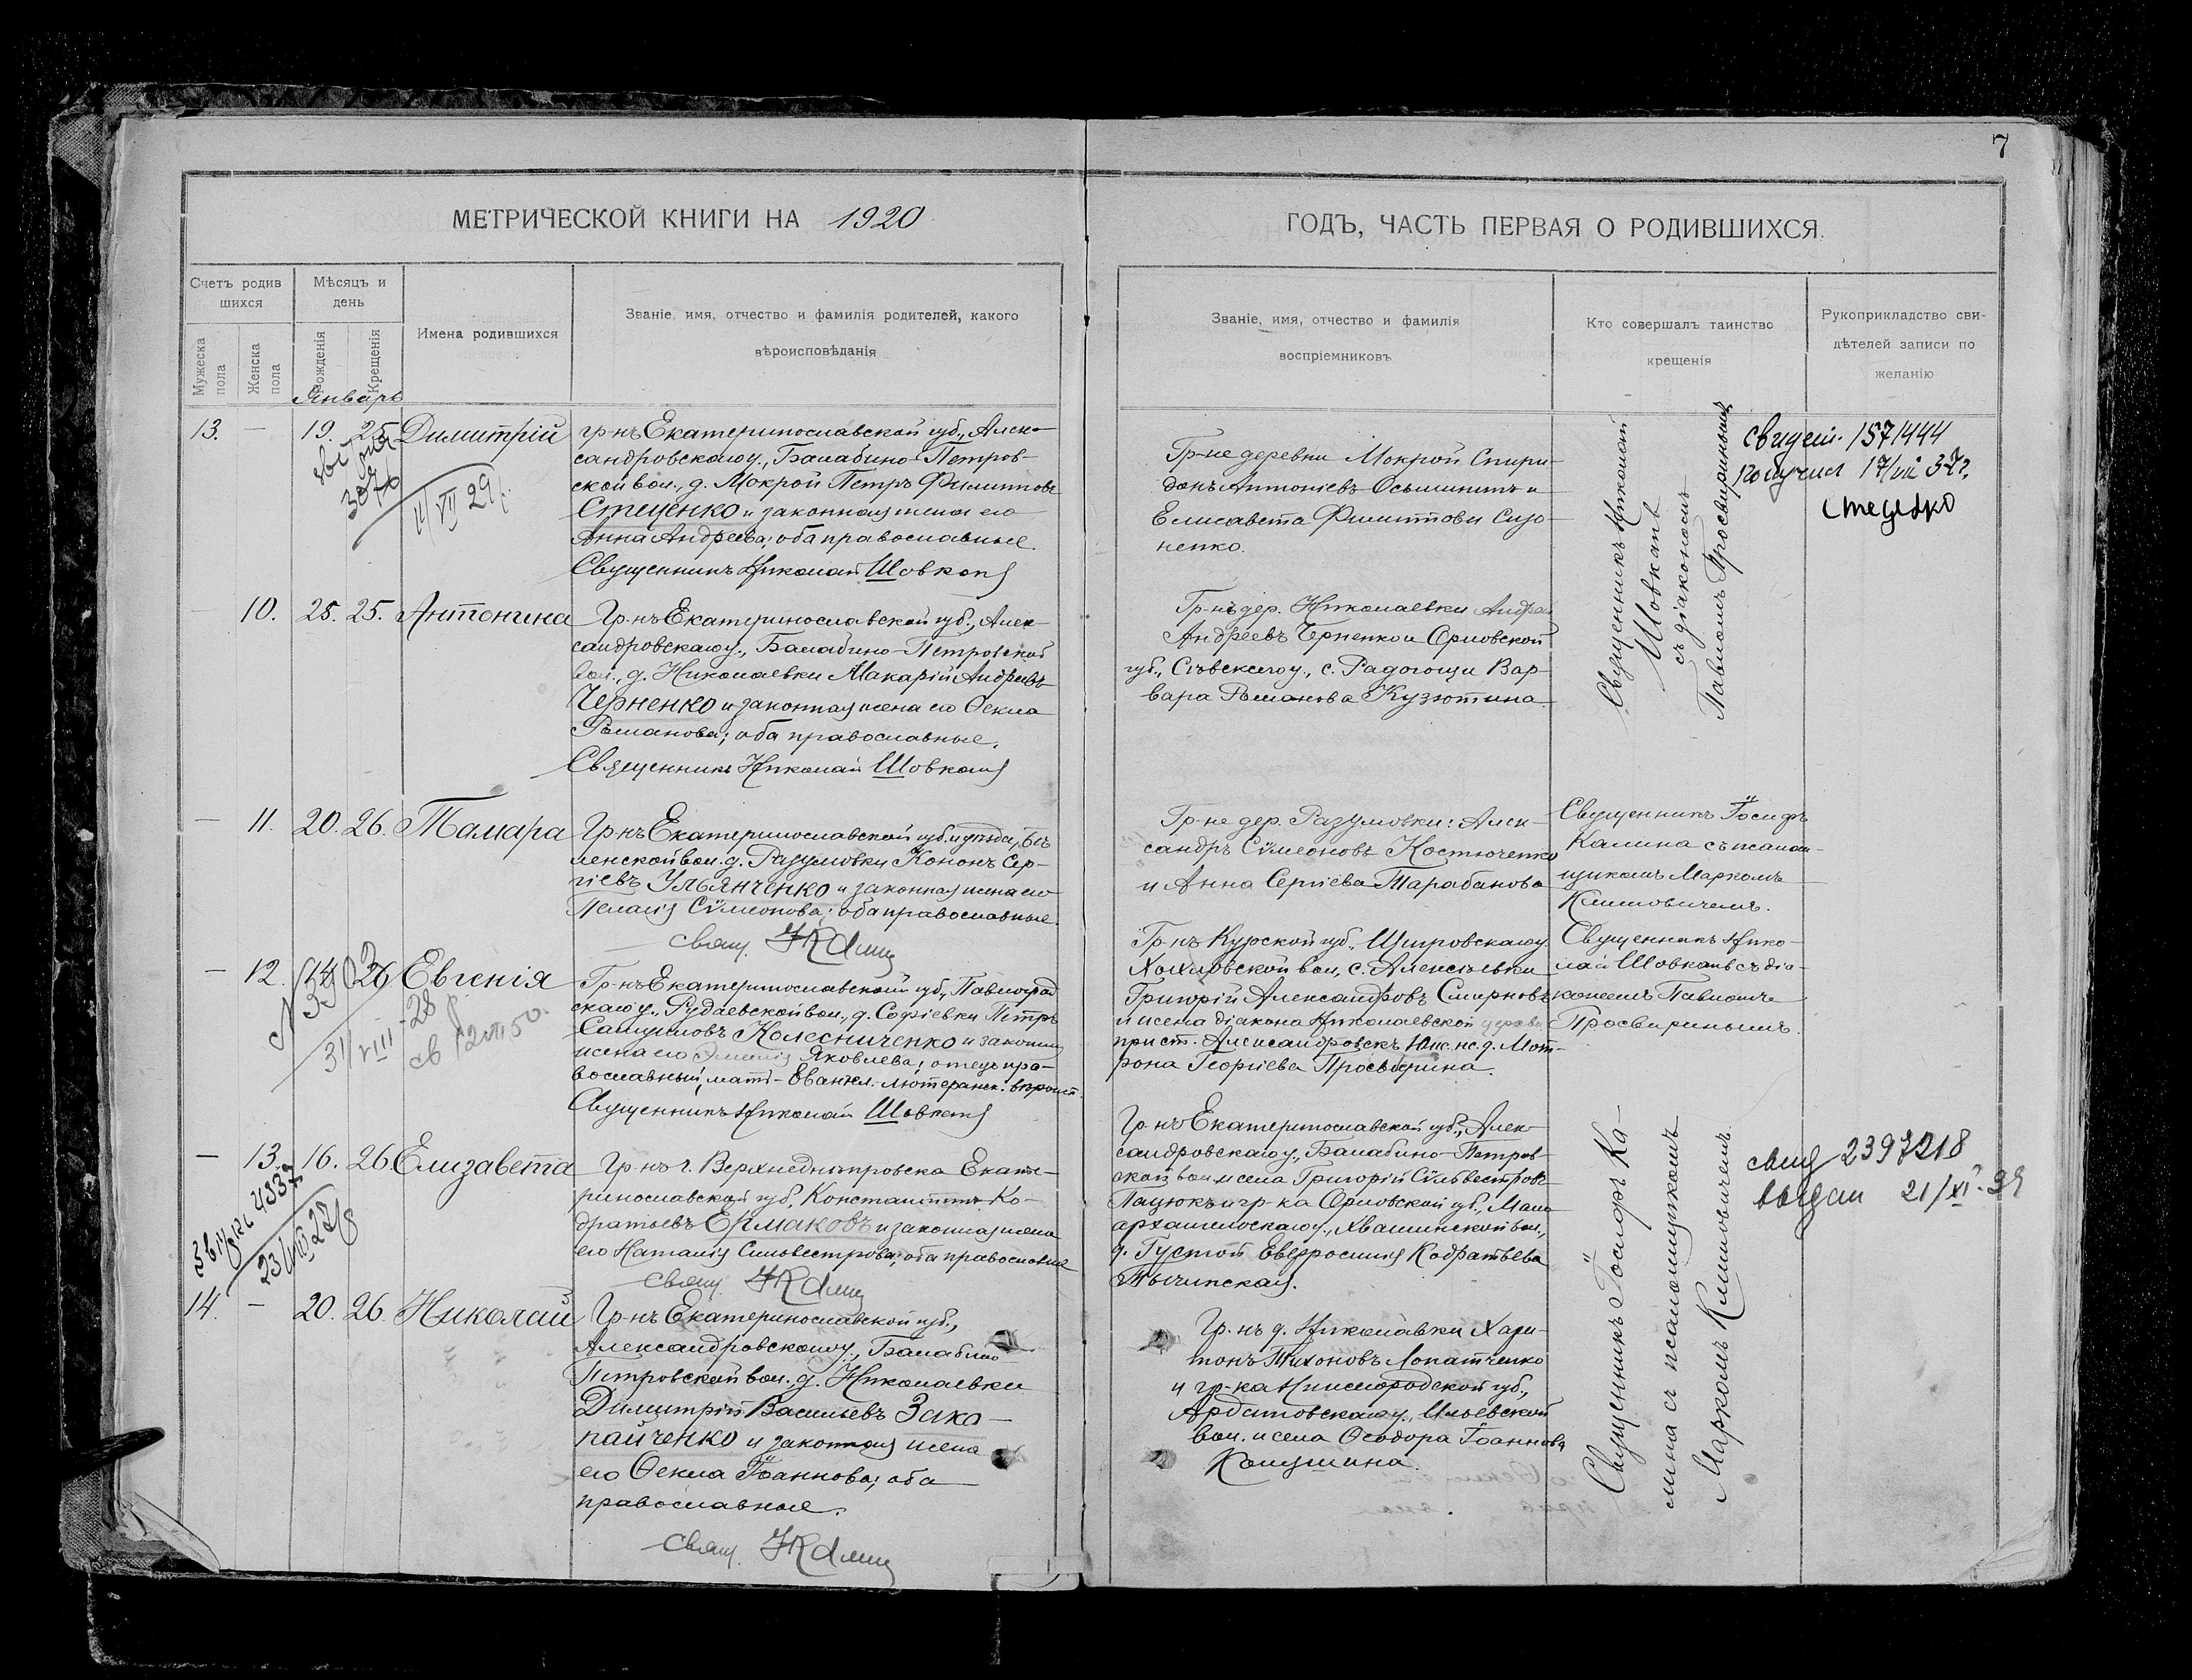 7
МЕТРИЧЕСКОЙ КНИГИ НА 1920
ГОДЪ, ЧАСТЬ ПЕРВАЯ О РОДИВШИХСЯ.
Счетъ родив
шихся
Мужеска
пола
Женска
пола
Мѣсяцъ и
день
Рожденія
Крещенія
Январь
Имена родившихся
Званіе, имя, отчество и фамилія родителей, какого
вѣроисповѣданія
Званіе, имя, отчество и фамилія
воспріемниковъ
Кто совершалъ таинство
крещенія
Рукоприкладство сви-
дѣтелей записи по
желанію
13. — 19. 25. Димитрій
3076
14/VII 29
гр-нъ Екатеринославской губ., Алек-
сандровскаго у., Балабино-Петров-
ской вол., д. Мокрой Петръ Филиповъ
Стеценко и законная жена его
Анна Андреева; оба православные.
Священникъ Николай Шовкопл
Гр-не деревни Мокрой Спири-
донъ Антоніевъ Осьмининъ и
Елисавета Филиппова Сизо-
ненко.
Священникъ Николай
Шовкапъ
съ діакономъ
Павломъ Просвиринымъ
свидет. 1571444
получил 17/VII 37г.
Стеценко
10. 25. 25. Антонина
Гр-нъ Екатеринославской губ., Алек-
сандровскаго у., Балабино-Петровской
вол., д. Николаевки Макарій Андреевъ
Черненко и законная жена его Ѳекла
Романова; оба православные.
Священникъ Николай Шовкопл
Гр-нъ дер. Николаевки Андрей
Андреевъ Черненко и Орловской
губ., Сѣвскаго у., с. Радогощи Вар-
вара Романова Кузютина.
— 11. 20. 26. Тамара
Гр-нъ Екатеринославской губ. и уѣзда, Бѣ-
ленской вол. д. Разумовки Кононъ Сер-
гіевъ Ульянченко и законная жена его
Пелагія Сѵмеонова; оба православные.
свящ. І Калин
Гр-не дер. Разумовки: Алек-
сандръ Сѵмеоновъ Костюченко
и Анна Сергіева Тарабанова
Священникъ Іосифъ
Калина съ псалом-
щикомъ Маркомъ
Климовичемъ.
— 12. 14. 26 Евгенія
N 390
31/VIII-28
св 12 VII 50
Гр-нъ Екатеринославской губ., Павлоград
скаго у., Рудаевской вол., д. Софіевки Петръ
Самуиловъ Колесниченко и законная
жена его Эмилія Яковлева; отецъ пра-
вославный, мать - Еванкл.-лютеранск.
Священникъ Николай Шовкопл
Гр-нъ Курской губ., Щигровскаго у.
Хохловской вол., с. Алексѣевки
Григорій Александровъ Смирновъ
и жена діакона Николаевской церкви
при ст. Александровскъ Юж. ж. д. Мот-
рона Георгіева Просвирина.
Священникъ Нико-
лай Шовкапъ съ діа-
кономъ Павломъ
Просвиринымъ.
— 13. 16. 26 Елизавета
4337
23/VIII 28
Гр-нъ г. Верхнеднѣпровска Екате-
ринославской губ., Константинъ Ко-
дратьевъ Ермаковъ и законная жена
его Наталія Сильвестрова; оба православные
свящ. І Калин
Гр-нъ Екатеринославской губ., Алек-
сандровскаго у., Балабино-Петров-
ской вол. и села Григорій Сильвестровъ
Пацюкъ и гр-ка Орловской губ., Мало
архангельскаго у., Хвашинской вол.,
д. Густой Евфросинія Кодратьева
Тычинская.
Священникъ Іосифъ Ка-
лина съ псаломщикомъ
Маркомъ Климовичемъ.
свид 2397218
выдан 21/XI-39
14. — 20. 26. Николай
Гр-нъ Екатеринославской губ.,
Александровскаго у., Балабино
Петровской вол., д. Николаевки
Димитрій Васильевъ Зако-
пайченко и законная жена
его Ѳекла Іоаннова; оба
православные.
свящ. І Калин
Гр-нъ д. Николавки Хари-
тонъ Тихоновъ Лопатченко
и гр-ка Нижегородской губ.,
Ардатовскаго у., Ильевской
вол. и села Ѳеодора Іоаннова
Колушина.